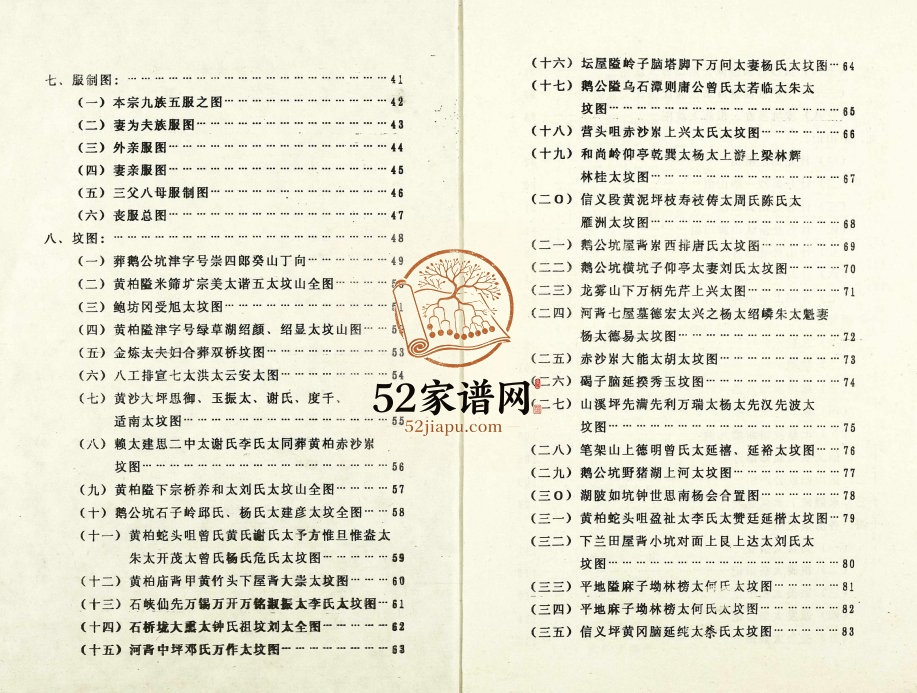 七、服制图：………41
（一）本宗九族五服之图………42
（二）妻为夫族服图………43
（三）外亲服图………44
（四）妻亲服图………45
（五）三父八母服制图………46
（六）丧服总图………47
八、坟图：………48
（一）葬鹅公坑津字号崇四郎癸山丁向………49
（二）黄柏隘米筛圹宗美太谐五太坟山全图………50
（三）鲍坊冈受旭太坟图………51
（四）黄柏隘津字号绿草湖绍颜、绍显太坟山图………
（五）金炼太夫妇合葬双桥坟图………53
（六）八工排宣七太洪太云安太图………54
（七）黄沙大坪思御、玉振太、谢氏、度千、
适南太坟图………55
（八）赖太建思二中太谢氏李氏太同葬黄柏赤沙岽
坟图………56
（九）黄柏隘下宗桥养和太刘氏太坟山全图………57
（十）鹅公坑石子岭邱氏、杨氏太建彦太坟全图………58
（十一）黄柏蛇头咀曾氏黄氏谢氏太予方惟旦惟盎太
朱太开茂太曾氏杨氏危氏太坟图………59
（十二）黄柏庙背甲黄竹头下屋背大崇太坟图………60
（十三）石峡仙先万锡万开万铭淑振太李氏太坟图…61
（十四）石桥垅大熏太钟氏祖坟刘太全图………62
（十五）河背中坪邓氏万作太坟图………63
（十六）坛屋隘岭子脑塔脚下万问太妻杨氏太坟图…64
（十七）鹅公隘乌石潭则庸公曾氏太若临太朱太
坟图………65
（十八）营头咀赤沙岽上兴太氏太坟图………66
（十九）和尚岭仰亭乾巽太杨太上游上梁林辉
林桂太坟图………67
（二0）信义段黄泥坪枝寿太周氏陈氏太
雁洲太坟图………68
（二一）鹅公坑屋背岽西排唐氏太坟图………69
（二二）鹅公坑横坑子仰亭太妻刘氏太坟图………70
（二三）龙雾山下万柄先芹上兴太图………71
（二四）河背七屋墓德宏太兴之杨太绍嶙朱太魁妻
杨太德易太坟图………72
（二五）赤沙岽大能太胡太坟图………73
（二六）碣子脑延揆秀玉坟图………74
（二七）山溪坪先满先利万瑞太杨太先汉先波太
坟图………75
（二八）笔架山上德明曾氏太延禧、延裕太坟图…76
（二九）鹅公坑野猪湖上河太坟图………77
（三0）湖陂如坑钟世思南杨会合置图………78
（三一）黄柏蛇头咀盈祉太李氏太赞廷延楷太坟图…79
（三二）下兰田屋背小坑对面上艮上达太刘氏太
坟图………80
（三三）平地隘麻子坳林榜太何氏太坟图………81
（三四）平地隘麻子坳林榜太何氏太坟图………82
（三五）信义坪黄冈脑延纯太蔡氏太坟图………83
52家谱网
52jiapu.com